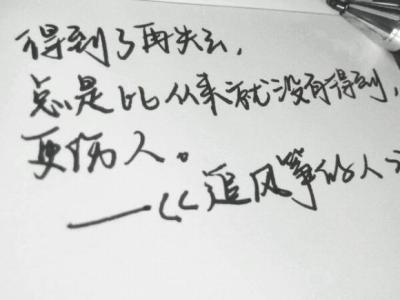 得到了再失去，
总是比从来就没有得到，
更伤人。
——《追风筝的人》